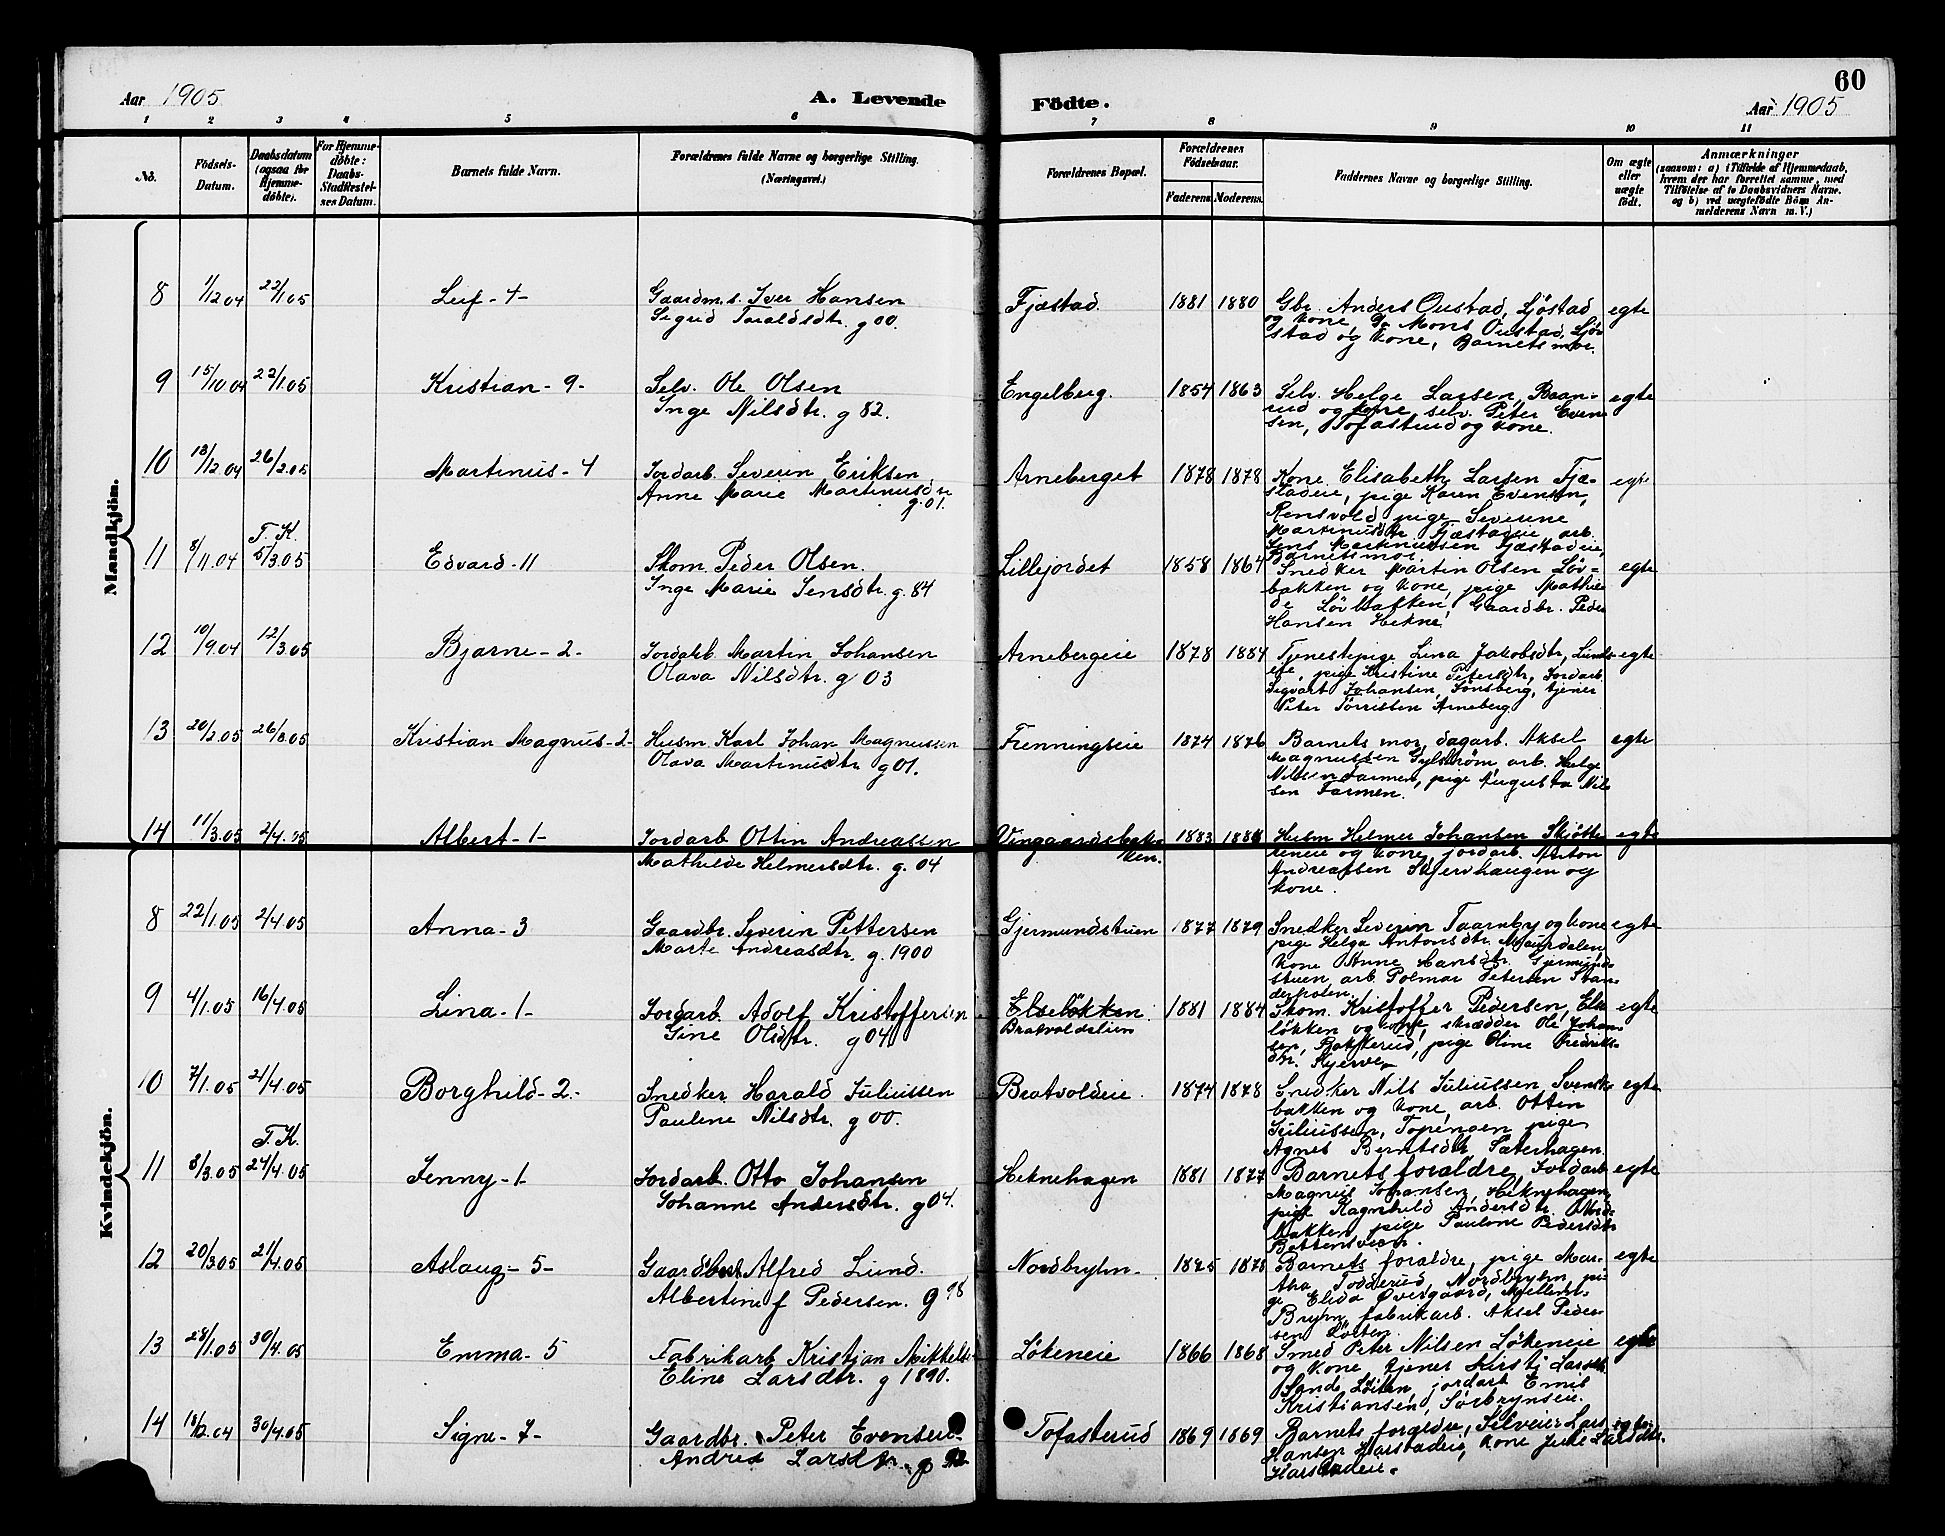 60
Aar 1905
A. Levende
Födte.
Aar 1905
1 2 3 4 5 6 7 8 9 10 11
No.
Födsels-
Datum.
Daabsdatum
(ogsaa for
Hjemme-
döbte).
For Hjemme-
döbte:
Daabs-
Stadfæstel-
ses Datum.
Barnets fulde Navn.
Forældrenes fulde Navne og borgerlige Stilling.
(Næringsvei.)
Forældrenes Bopæl.
Forældrenes
Födselsaar.
Faderens. Moderens.
Faddernes Navne og borgerlige Stilling.
Om ægte
eller
uægte
födt.
Anmærkninger
(saasom: a) i Tilfælde af Hjemmedaab,
hvem der har forrettet samme, med
Tilföielse af to Daabsvidners Navne.
og b) ved uægtefödte Börn An-
melderens Navn m. V.)
Mandkjön.
8 1/12 04 22/1 05 Leif - 4 - Gaardm.s. Iver Hansen
Sigrid Toraldsdtr. g 00.
Fjæstad. 1881 1880 Gbr. Anders Oustad, Ljøstad
og kone, Gb Mons Oustad, Ljø-
stad og kone, Barnets mor.
egte
9 15/10 04 22/1.05 Kristian - 9 - Selv. Ole Olsen
Inge Nilsdtr. g 82.
Engelberg. 1854 1863 Selv. Helge Larsen, Baan-
rud og kone, selv. Peter Even-
sen, Tofasterud og kone.
egte
10 18/12 04 26/2.05 Martinus - 4 Jordarb. Severin Eriksen
Anne Marie Martinusdtr
g. 01.
Arneberget 1878 1878 Kone Elisabeth Larsen Fjæ-
stadeie, pige Karen Evensen,
Rensvold, pige Severine
Martinusdtr Fjæstadeie arb.
Jens Martinussen Fjæstadeie,
Barnets mor
egte
11 8/11.04 T. K.
5/3.05 Edvard - 11 Skom. Peder Olsen.
Inge Marie Jensdtr. g. 84
Lillejordet 1858 1864 Snedker Martin Olsen Løv-
bakken og kone, pige Mathil-
de Løvbakken, Gaardbr. Peder
Hansen Hekne
egte
12 10/9.04 12/3.05 Bjarne - 2 - Jordarb. Martin Johansen
Olava Nilsdtr. g 03
Arnebergeie 1878 1884 Tjenestepige Lina Jakobsdtr, Lunds-
eie, pige Kristine Petersdtr, Jordarb.
Sigvart Johansen, Tønsberg, tjener
Peter Torristen Arneberg
egte
13 20/2.05 26/3.05 Kristian Magnus - 2 - Husm. Karl Johan Magnussen
Olava Martinusdtr g 01.
Frenningseie 1874 1876 Barnets mor, dagarb. Aksel
Magnussen Gylstrøm arb. Helge
Nilsen Farmen, pige Augusta Nil-
sen Farmen.
egte
14 11/3.05 2/4.05 Albert - 1 - Jordarb Ottin Andreassen
Mathilde Helmersdtr. g. 04
Vingaardsbak-
ken. 1883 Husm Helmer Johansen Skjøtte-
reneie og kone, jordarb. Anton
Andreassen Skjervhaugen og
kone.
egte
Kvindekjön.
8 22/1.05 2/4.05 Anna - 3 Gaardbr. Severin Pettersen
Marte Andreasdtr. g. 1900
Gjermundstuen 1877 1879 Snedker Severin Taarnby og kone
pige Helga Antonsdtr. Maurdalen,
kone Anne Hansdtr. Gjermund-
stuen arb Polmar Petersen Stan-
derholen.
egte
9 4/1.05 16/4.05 Lina - 1 - Jordarb. Adolf Kristoffersen
Gine Olsdtr. g 04
Elseløkken.
Bratvoldstuen 1881 1884 Skom. Kristoffer Pedersen, Else-
løkken og kone, skrædder Ole Johan-
sen, Bakkerud, pige Oline Fredriks-
dtr. Skjerven
egte
10 7/1.05 21/4.05 Borghild - 2 - Snedker Harald Juliussen
Pauline Nilsdtr. g 00.
Bratvoldeie. 1874 1878 Snedker Nils Juliussen, Svensk-
bakken og kone, arb. Otten
Juliussen, Topengen pige
Agnes Berntsdtr Sæterhagen.
egte
11 8/3.05 T. K.
24/4.05 Jenny - 1 Jordarb. Otto Johansen
Johanne Andersdtr. g 04.
Heknehagen 1881 1877 Barnets forældre, Jordarb
Magnus Johansen, Heknehagen
pige Ragnhild Andersdtr.
bakken, pige Pauline Pedersdtr
egte
12 20/3.05 21/4.05 Aslaug - 5 - Gaardbr. Alfred Lund.
Albertine f Pedersen. g 98
Nordbryhn 1875 1878 Barnets forældre, pige Mar-
tha Todderud, Nordbryhn, pi-
ge Elida Øvergaard, Mellem-
Bryhn, fabrikarb. Aksel Peder-
sen Løiten.
egte
13 28/1.05 30/4.05 Emma - 5 Fabrikarb Kristjan Mikkels.
Eline Larsdtr. g 1890.
Løkeneie 1866 1868 Smed Peter Nilsen Løkeneie
og kone, tjener Kirsti Larsdt.
Sande Løiten, jordarb Emil
Kristiansen, Sørbrynseie.
egte
14 13/12.04 30/4.05 Signe - 7 - Gaardbr. Peter Evensen
Andrea Larsdtr. g 92
Tofasterud 1869 1869 Barnets forældre, Selveier Lars
Hansen Harstadeie, kone Julie Larsdtr.
Harstadeie.
egte